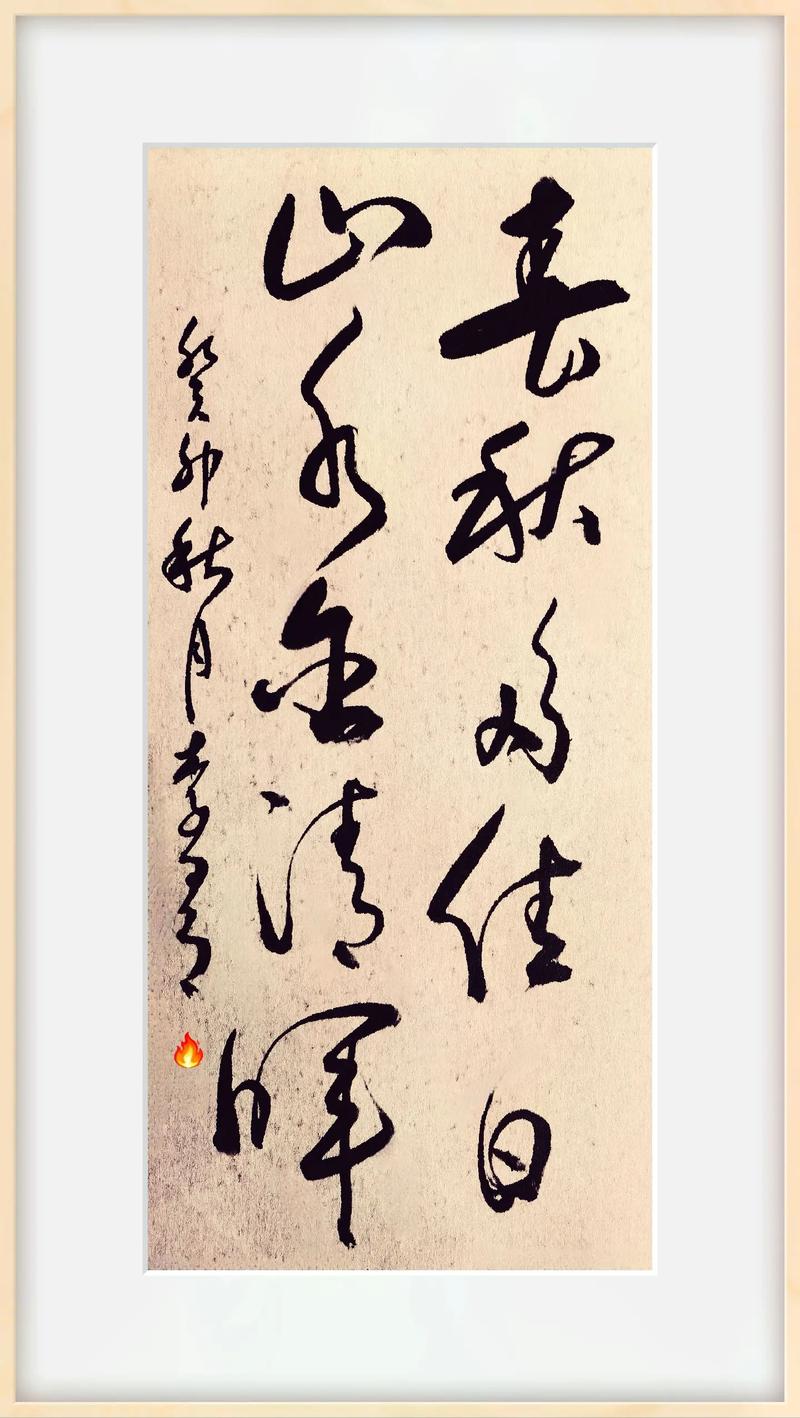 春秋多佳日
山水含清晖
癸卯秋月李